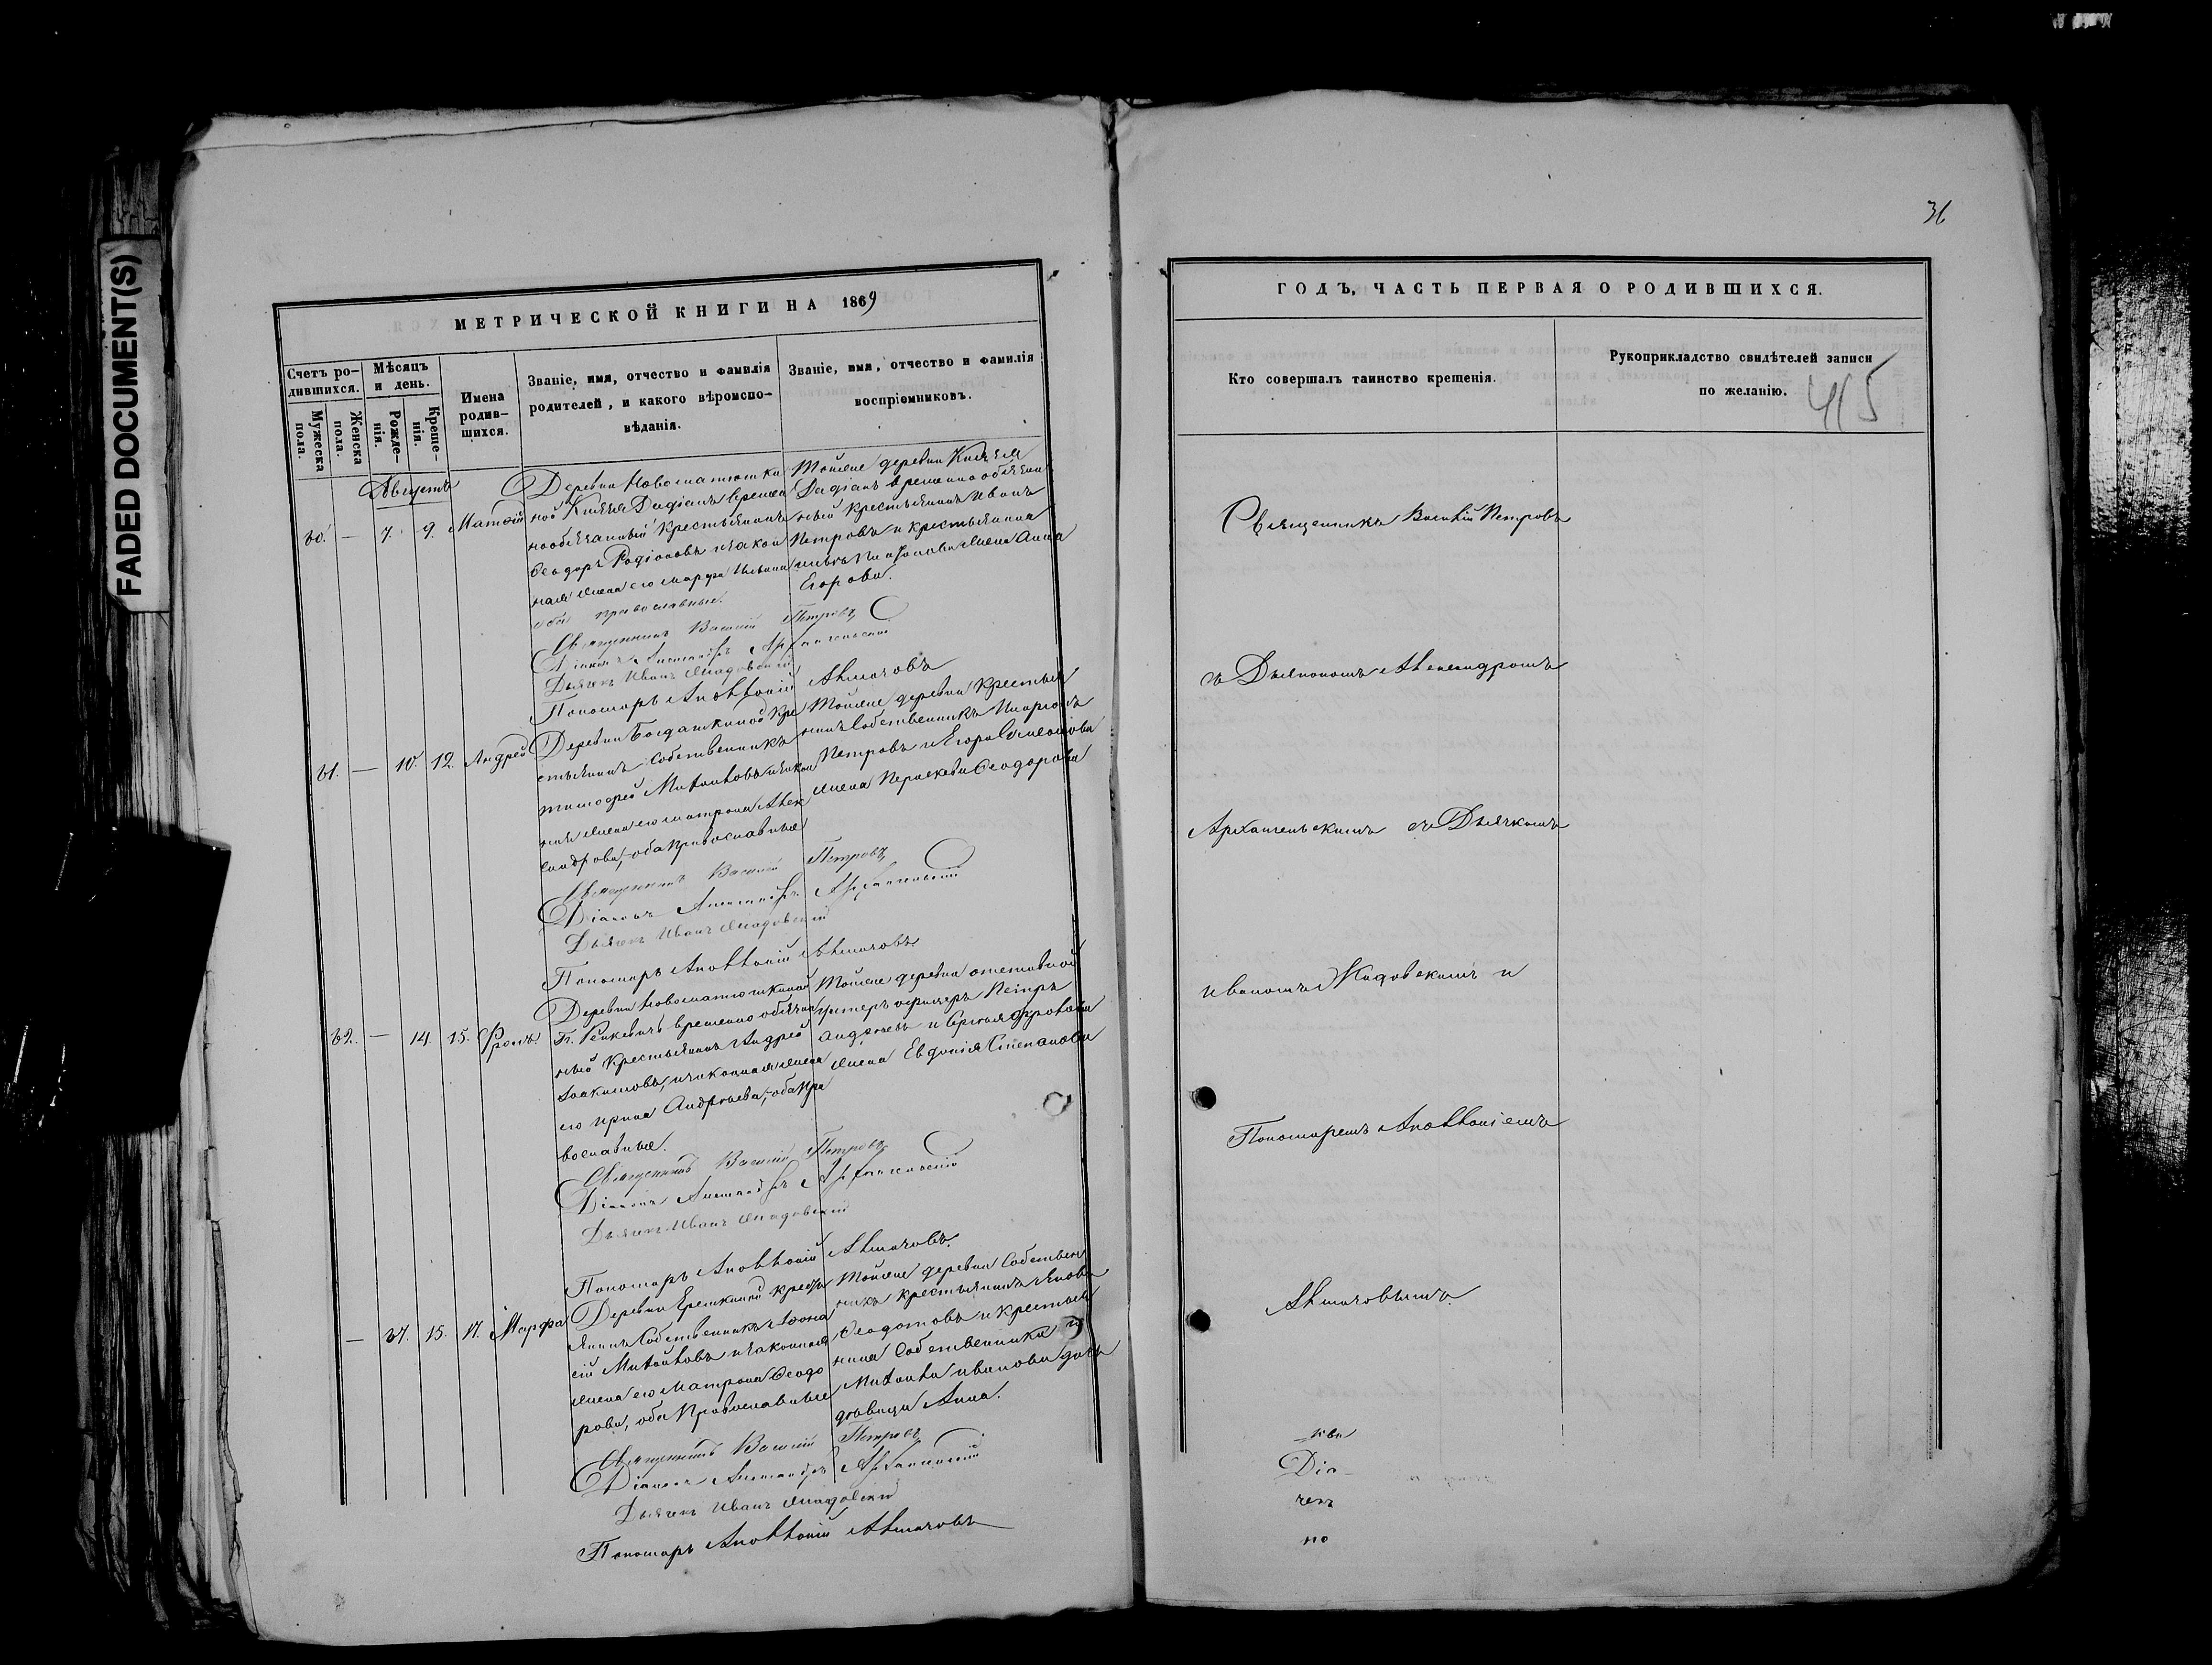 FADED DOCUMENT(S)
МЕТРИЧЕСКОЙ КНИГИ НА 1869
Счетъ ро-
дившихся.
Мужеска
пола.
Женска
пола.
Мѣсяцъ
и день.
Рожде-
нія.
Креще-
нія.
Имена
родив-
шихся.
Званіе, имя, отчество и фамилія
родителей, и какого вѣроиспо-
вѣданія.
Званіе, имя, отчество и фамилія
воспріемниковъ.
Августъ
30. — 7. 9. Матѳій
Деревни
ной Князя Дадіанъ времен
нообязанный Крестьянинъ
Ѳеодоръ Родіоновъ и закон
ная жена его Марѳа
оба православные.
Тойже деревни Князя
Дадіанъ временнообязан
ный крестьянинъ Иванъ
Петровъ и крестьянина
жена Анна
Егорова.
Священникъ Василій Петровъ
Діаконъ Александръ Архангельскій
Дьячекъ Иванъ Жадовскій
Пономарь Аполлоній Алмазовъ
31. — 10. 12. Андрей
Деревни Богдашкиной Кре
стьянинъ Собственникъ
Тимоѳей Михайловъ и закон
ная жена его Матрона Алек
сандрова, оба Православные
Тойже деревни Крестья
нинъ Собственникъ
Петровъ и Егора Симеонова
жена Параскева Ѳеодорова
Священникъ Василій Петровъ
Діаконъ Александръ Архангельскій
Дьячекъ Иванъ Жадовскій
Пономарь Аполлоній Алмазовъ
32. — 14. 15. Фролъ.
Деревни
Г. временно обязан
ный Крестьянинъ Андрей
Іоакимовъ, и законная жена
его Ирина Андреева, оба Пра
вославные.
Тойже деревни отставной
унтеръ офицеръ Петръ
Андреевъ и Сергея Фролова
жена Евдокія Степанова
Священникъ Василій Петровъ
Діаконъ Александръ Архангельскій
Дьячекъ Иванъ Жадовскій
Пономарь Аполлоній Алмазовъ.
— 37. 15. 17. Марѳа
Деревни кресть
янинъ Собственникъ Аѳана
сій Михайловъ и законная
жена его Матрона Ѳеодо
рова, оба Православные
Тойже деревни Собствен
никъ крестьянинъ Яковъ
Ѳедотовъ и крестья
нина Собственника
Михаила Иванова дочь
дѣвица Анна.
Священникъ Василій Петровъ
Діаконъ Александръ Архангельскій
Дьячекъ Иванъ Жадовскій
Пономарь Аполлоній Алмазовъ
36
ГОДЪ, ЧАСТЬ ПЕРВАЯ О РОДИВШИХСЯ.
Кто совершалъ таинство крещенія.
Рукоприкладство свидѣтелей записи
по желанію.
415
Священникъ Василій Петровъ
съ Дьякономъ Александромъ
Архангельскимъ съ Дьячкомъ
Иваномъ Жадовскимъ и
Пономаремъ Аполлоніемъ
Алмазовымъ.
Діа-
чекъ
но